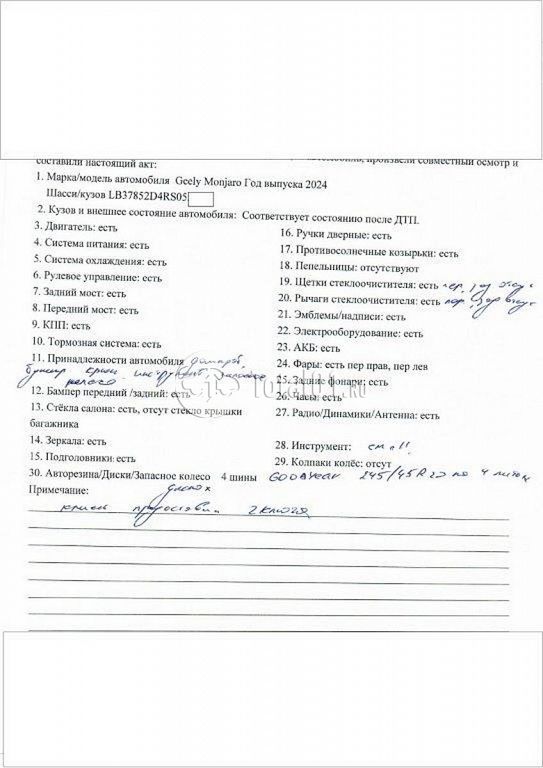 составили настоящий акт:
1. Марка/модель автомобиля Geely Monjaro Год выпуска 2024
Шасси/кузов LB37852D4RS05
2. Кузов и внешнее состояние автомобиля: Соответствует состоянию после ДТП.
3. Двигатель: есть
4. Система питания: есть
5. Система охлаждения: есть
6. Рулевое управление: есть
7. Задний мост: есть
8. Передний мост: есть
9. КПП: есть
10. Тормозная система: есть
11. Принадлежности автомобиля домкрат,
буксир крюк инструмент, запасное
колесо
12. Бампер передний /задний: есть
13. Стёкла салона: есть, отсут стекло крышки
багажника
14. Зеркала: есть
15. Подголовники: есть
16. Ручки дверные: есть
17. Противосолнечные козырьки: есть
18. Пепельницы: отсутствуют
19. Щетки стеклоочистителя: есть пер,
20. Рычаги стеклоочистителя: есть пер,
21. Эмблемы/надписи: есть
22. Электрооборудование: есть
23. АКБ: есть
24. Фары: есть пер прав, пер лев
25. Задние фонари: есть
26. Часы: есть
27. Радио/Динамики/Антенна: есть
28. Инструмент: см. 11
29. Колпаки колёс: отсут
30. Авторезина/Диски/Запасное колесо 4 шины GOODYEAR 245/45R20 на 4 литых
дисках
Примечание:
2 ключа
total01.ru